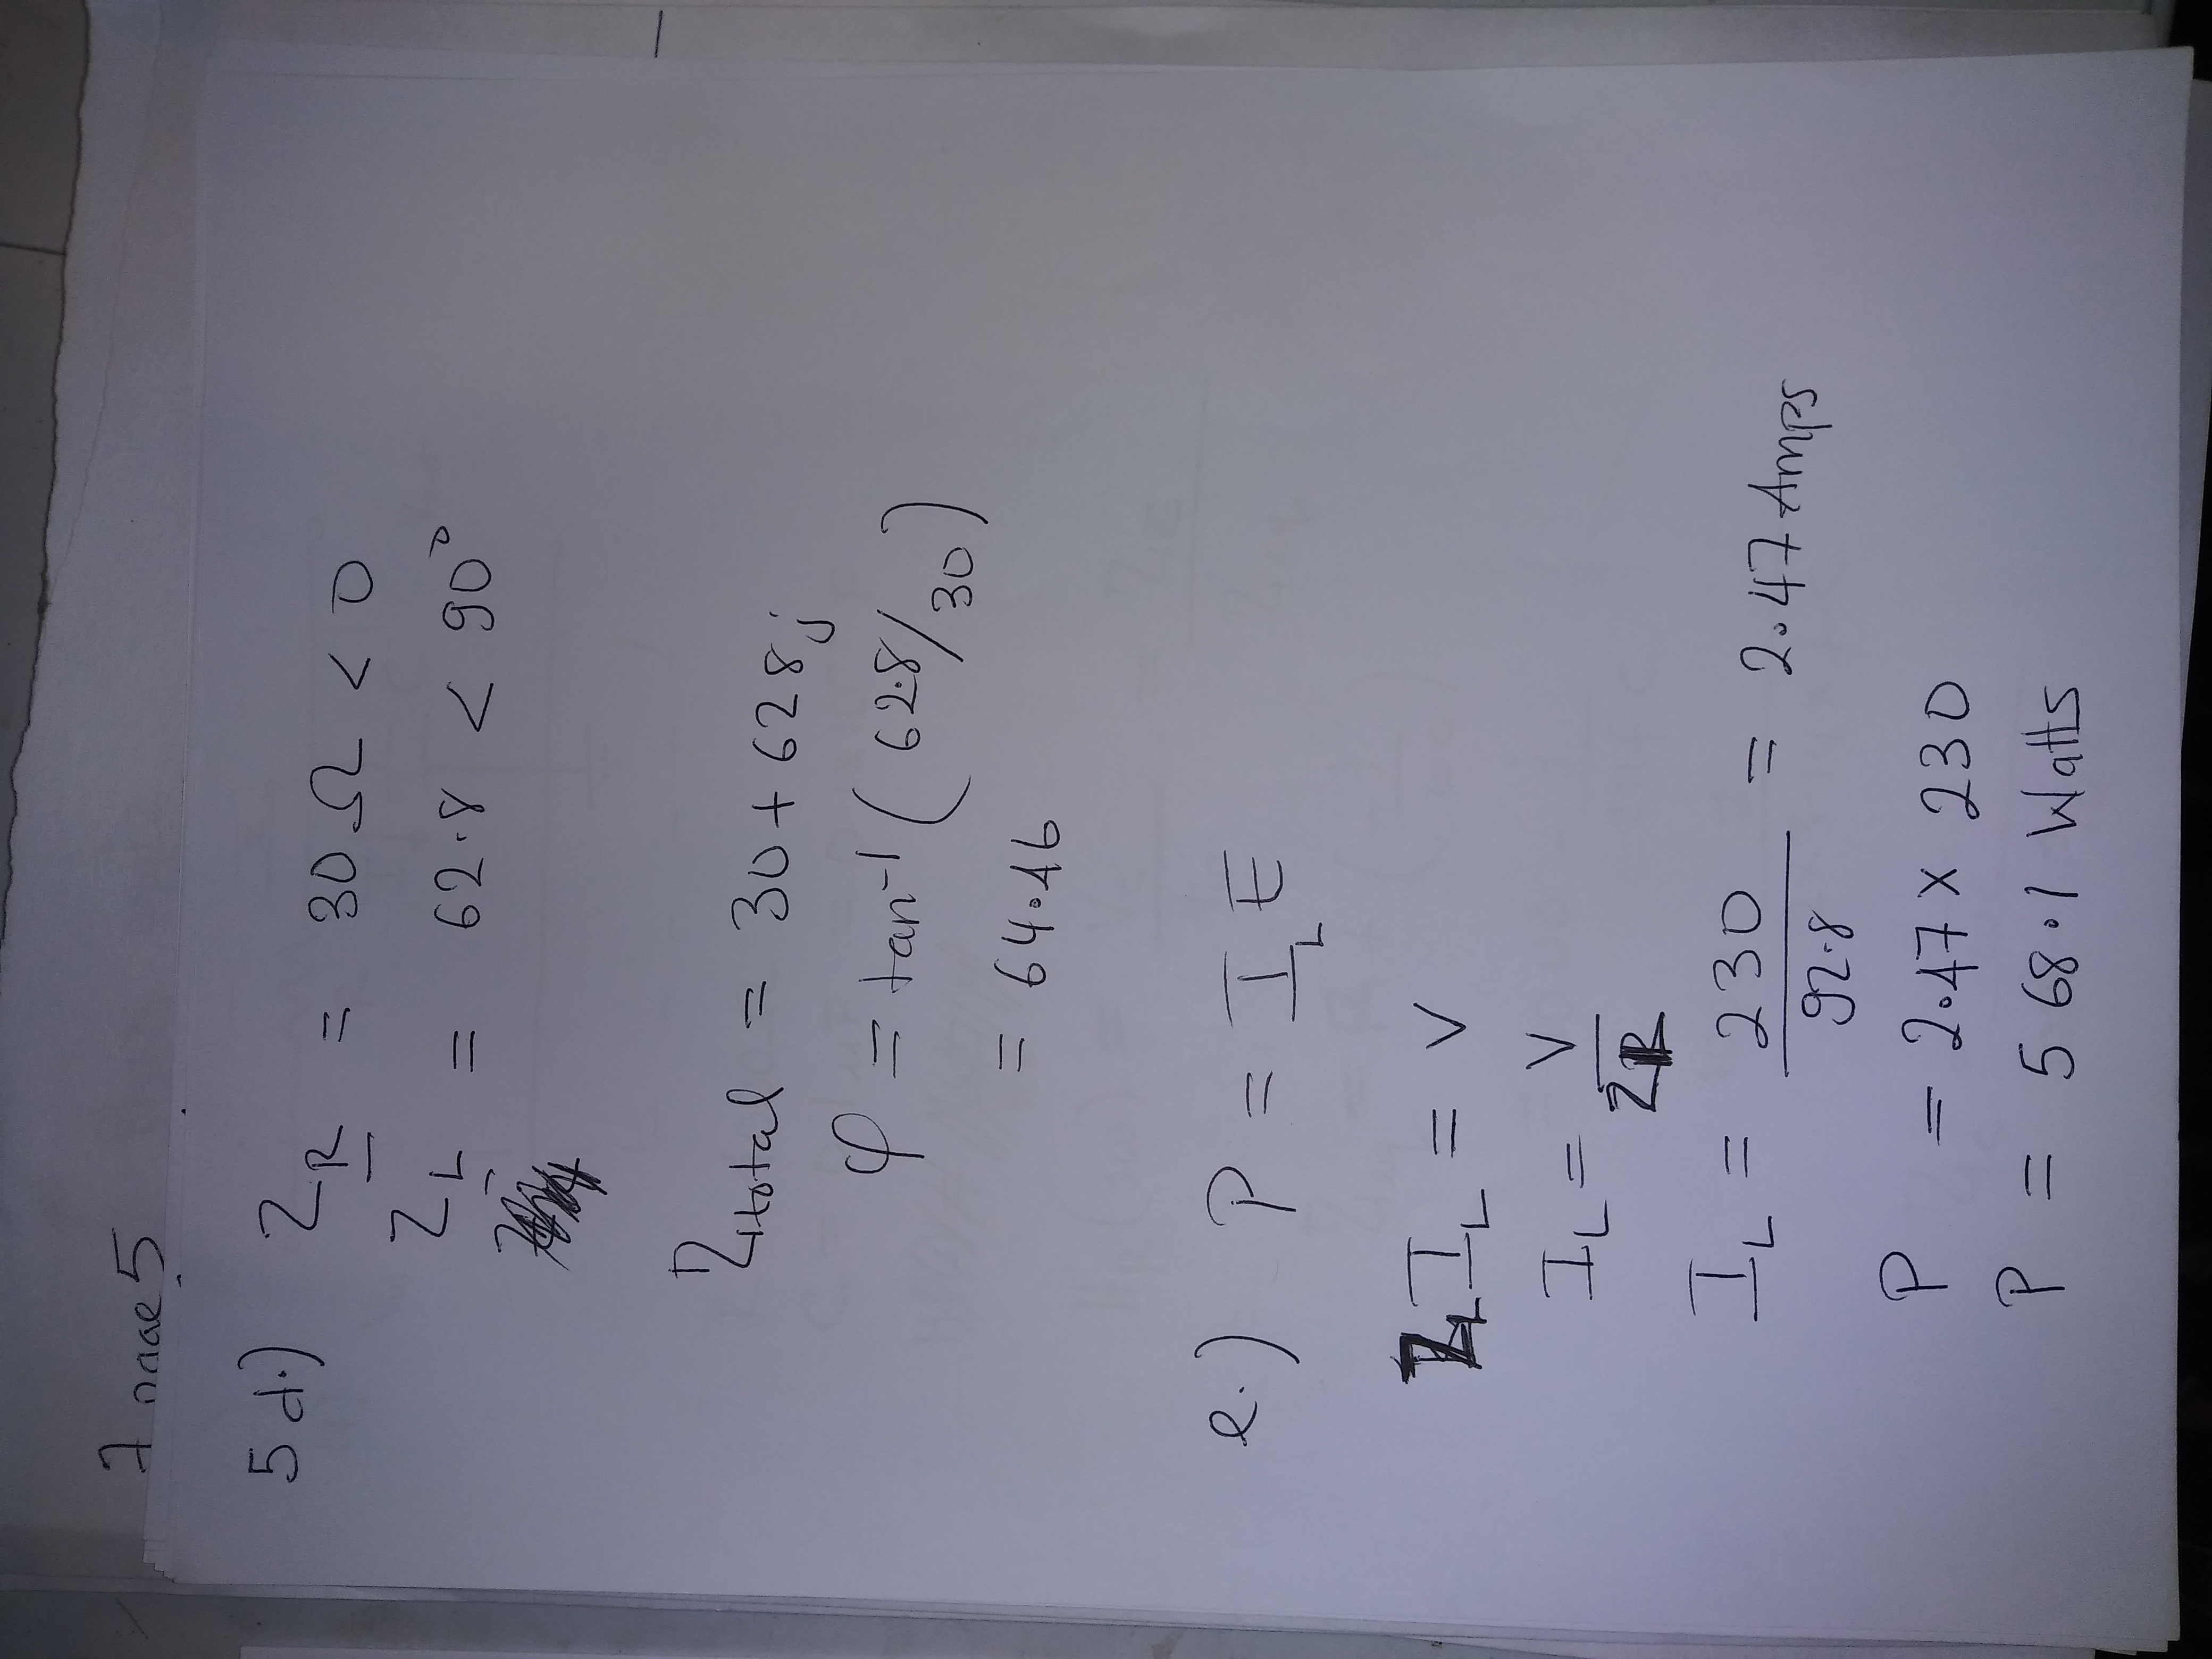 7 page 5
5 d.) Z_R = 30 Ω < 0
Z_L = 62.8 < 90°
Z_total = 30 + 628j
φ = tan⁻¹ ( 62.8/30 )
= 64.46
e.) P = I_L E
Z_L I_L = V
I_L = V / Z_R
I_L = 230 / 92.8 = 2.47 Amps
P = 2.47 x 230
P = 568.1 Watts